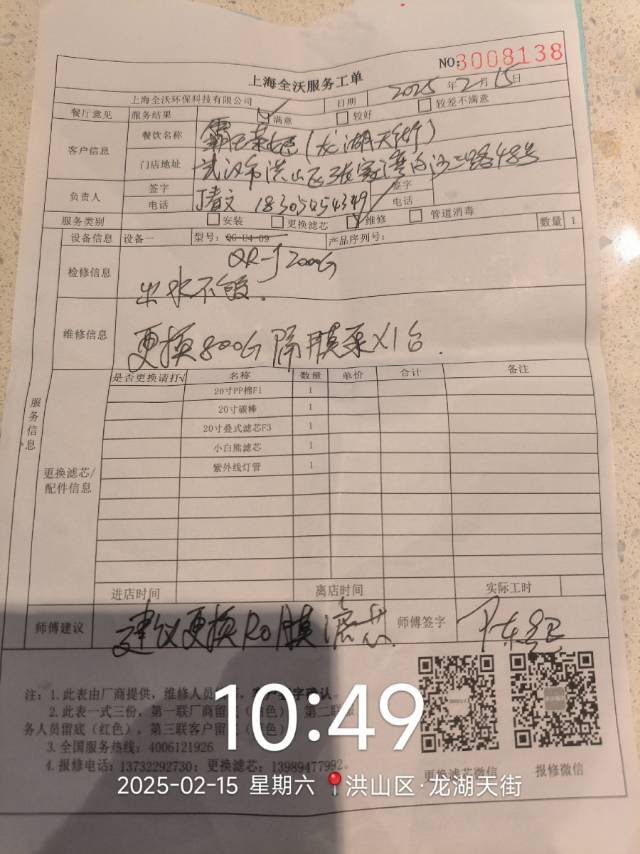 NO:3008138
上海全沃服务工单
上海全沃环保科技有限公司 日期 2025年2月15日
餐厅意见 服务结果 ☑满意 □较好 □较差不满意
客户信息 餐饮名称 霸王茶姬(龙湖天街)
门店地址 武汉市洪山区张家湾白沙三路48号
负责人 签字 签字
电话 18305454349 电话
服务类别 □安装 □更换滤芯 ☑维修 □管道消毒 数量 1
设备信息 设备一 型号: QG-U4-09 产品序列号:
QR-J200G
检修信息 出水不够.
维修信息 更换800G隔膜泵X1台.
服务信息
是否更换请打√ 名称 数量 单价 合计 备注
20寸PP棉F1 1
20寸碳棒 1
20寸叠式滤芯F3 1
小白熊滤芯 1
紫外线灯管 1
更换滤芯/配件信息
进店时间 离店时间 实际工时
师傅建议 建议更换RO膜滤芯. 师傅签字
注:1.此表由厂商提供,维修人员
2.此表一式三份,第一联厂商留底
务人员留底(红色)、第三联客户留
3.全国服务热线:4006121926
4.报修电话:13732292730;更换滤芯:13989477992.
更换滤芯微信 报修微信
10:49
2025-02-15 星期六 洪山区·龙湖天街